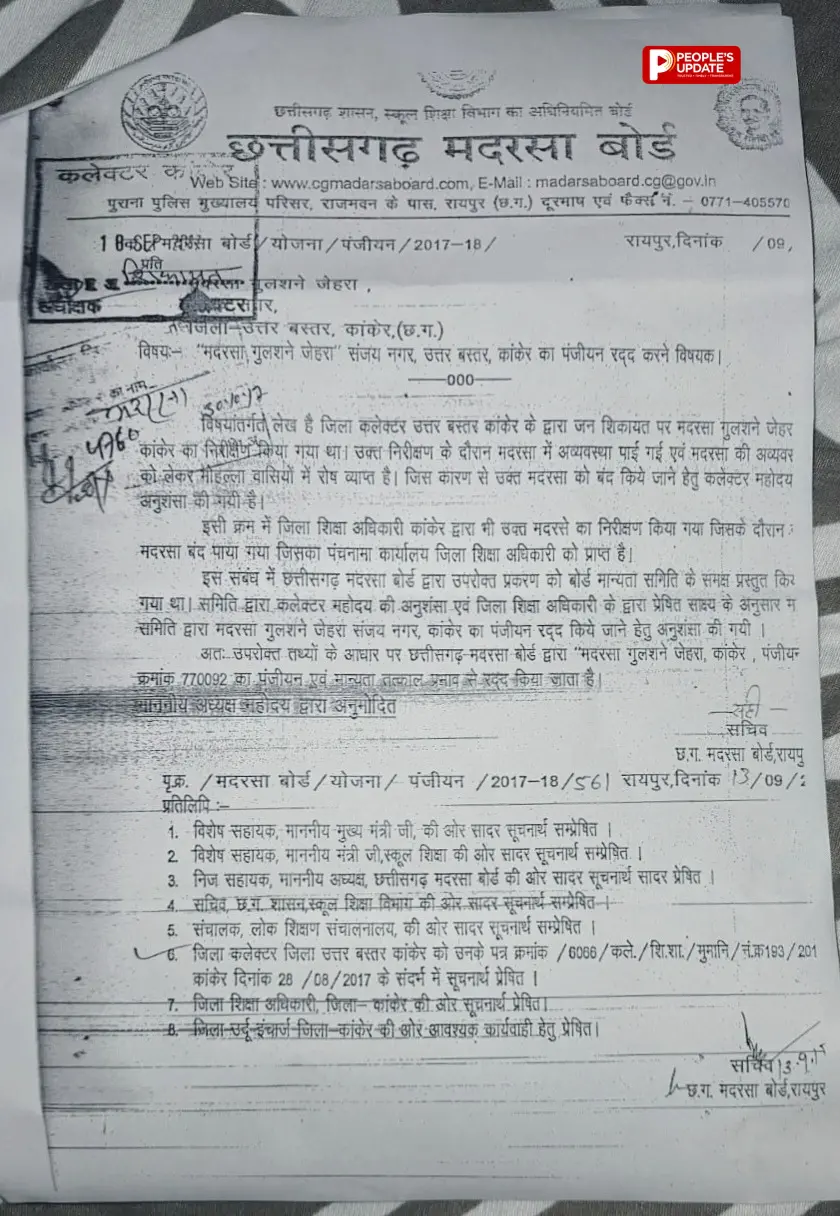 PEOPLE'S
UPDATE
छत्तीसगढ़ शासन, स्कूल शिक्षा विभाग का अधिनियमित बोर्ड
छत्तीसगढ़ मदरसा बोर्ड
कलेक्टर
Web Site : www.cgmadarsaboard.com, E-Mail : madarsaboard.cg@gov.in
पुराना पुलिस मुख्यालय परिसर, राजभवन के पास, रायपुर (छ.ग.) दूरभाष एवं फैक्स नं. – 0771-405570
18 SEP मदरसा बोर्ड/योजना/पंजीयन/2017-18/ रायपुर,दिनांक /09,
प्रति
गुलशने जेहरा ,
जिला-उत्तर बस्तर, कांकेर,(छ.ग.)
विषयः– "मदरसा गुलशने जेहरा" संजय नगर, उत्तर बस्तर, कांकेर का पंजीयन रद्द करने विषयक।
——000——
विषयांतर्गत लेख है जिला कलेक्टर उत्तर बस्तर कांकेर के द्वारा जन शिकायत पर मदरसा गुलशने जेहर
कांकेर का निरीक्षण किया गया था। उक्त निरीक्षण के दौरान मदरसा में अव्यवस्था पाई गई एवं मदरसा की अव्यवर
को लेकर मोहल्ला वासियों में रोष व्याप्त है। जिस कारण से उक्त मदरसा को बंद किये जाने हेतु कलेक्टर महोदय
अनुशंसा की गयी है।
इसी क्रम में जिला शिक्षा अधिकारी कांकेर द्वारा भी उक्त मदरसे का निरीक्षण किया गया जिसके दौरान
मदरसा बंद पाया गया जिसका पंचनामा कार्यालय जिला शिक्षा अधिकारी को प्राप्त है।
इस संबंध में छत्तीसगढ़ मदरसा बोर्ड द्वारा उपरोक्त प्रकरण को बोर्ड मान्यता समिति के समक्ष प्रस्तुत किय
गया था। समिति द्वारा कलेक्टर महोदय की अनुशंसा एवं जिला शिक्षा अधिकारी के द्वारा प्रेषित साक्ष्य के अनुसार म
समिति द्वारा मदरसा गुलशने जेहरा संजय नगर, कांकेर का पंजीयन रद्द किये जाने हेतु अनुशंसा की गयी ।
अतः उपरोक्त तथ्यों के आधार पर छत्तीसगढ़ मदरसा बोर्ड द्वारा "मदरसा गुलशने जेहरा, कांकेर , पंजीयन
क्रमांक 770092 का पंजीयन एवं मान्यता तत्काल प्रभाव से रद्द किया जाता है।
माननीय अध्यक्ष महोदय द्वारा अनुमोदित
सही
सचिव
छ.ग. मदरसा बोर्ड,रायपु
पृक्र. /मदरसा बोर्ड/योजना/ पंजीयन /2017-18/561 रायपुर,दिनांक 13/09/2
प्रतिलिपि :–
1. विशेष सहायक, माननीय मुख्य मंत्री जी, की ओर सादर सूचनार्थ सम्प्रेषित ।
2. विशेष सहायक, माननीय मंत्री जी,स्कूल शिक्षा की ओर सादर सूचनार्थ सम्प्रेषित ।
3. निज सहायक, माननीय अध्यक्ष, छत्तीसगढ़ मदरसा बोर्ड की ओर सादर सूचनार्थ सादर प्रेषित ।
4. सचिव, छ.ग. शासन,स्कूल शिक्षा विभाग की ओर सादर सूचनार्थ सम्प्रेषित ।
5. संचालक, लोक शिक्षण संचालनालय, की ओर सादर सूचनार्थ सम्प्रेषित ।
6. जिला कलेक्टर जिला उत्तर बस्तर कांकेर को उनके पत्र क्रमांक /6066/कले./शि.शा./मुमानि/नं.क्र193/201
कांकेर दिनांक 28 /08/2017 के संदर्भ में सूचनार्थ प्रेषित ।
7. जिला शिक्षा अधिकारी, जिला– कांकेर की ओर सूचनार्थ प्रेषित।
8. जिला उर्दू इंचार्ज जिला–कांकेर की ओर आवश्यक कार्यवाही हेतु प्रेषित।
सचिव 13.9.17
छ.ग. मदरसा बोर्ड,रायपुर